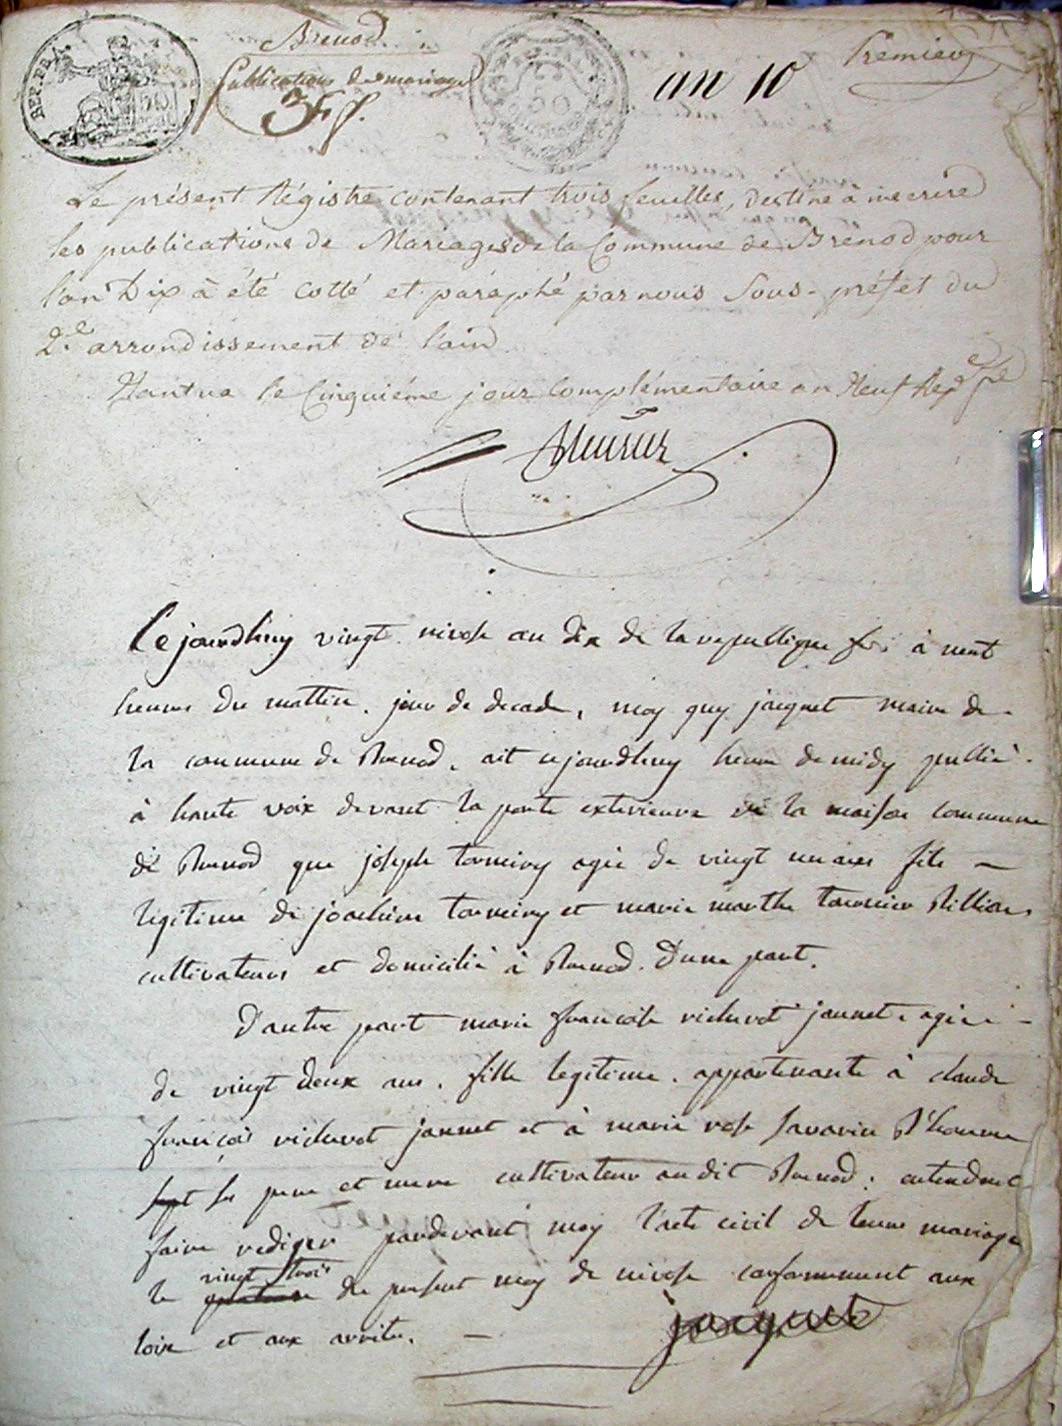 REP. FRA.
Brenod
publications de mariage
3 f.
an 10
Premier
Le présent Régistre contenant trois feuilles, destiné a inscrire
les publications de Mariages de la Commune de Brénod pour
l'an Dix à été cotté et paraphé par nous Sous-préfet du
2.e arrondissement de l'ain
Nantua le Cinquiéme jour Complémentaire an Neuf
Cejourdhuy vingt nivose an dix de la republique fr. à neuf
heures du mattin, jour de decade, moy guy jacquet maire de
la commune de Brenod, ait cejourdhuy heure de midy publié
à haute voix devant la porte exterieure de la maison commune
de Brenod que joseph tornciry agée de vingt un ans fils
legitime de joachim tornciry et marie marthe tournier Billion
cultivateurs et domicilié à Brenod. D'une part.
D'autre part marie francoise richerot jannet agée
de vingt deux ans, fille legitime appartenante à claude
françois richerot jannet et à marie rose savarin
ses pere et mere cultivateur audit Brenod; entendent
faire rediger pardevant moy l'acte civil de leur mariage
vingt trois
le du present moy de nivose conformement aux
loix et aux arrités.
jacquet